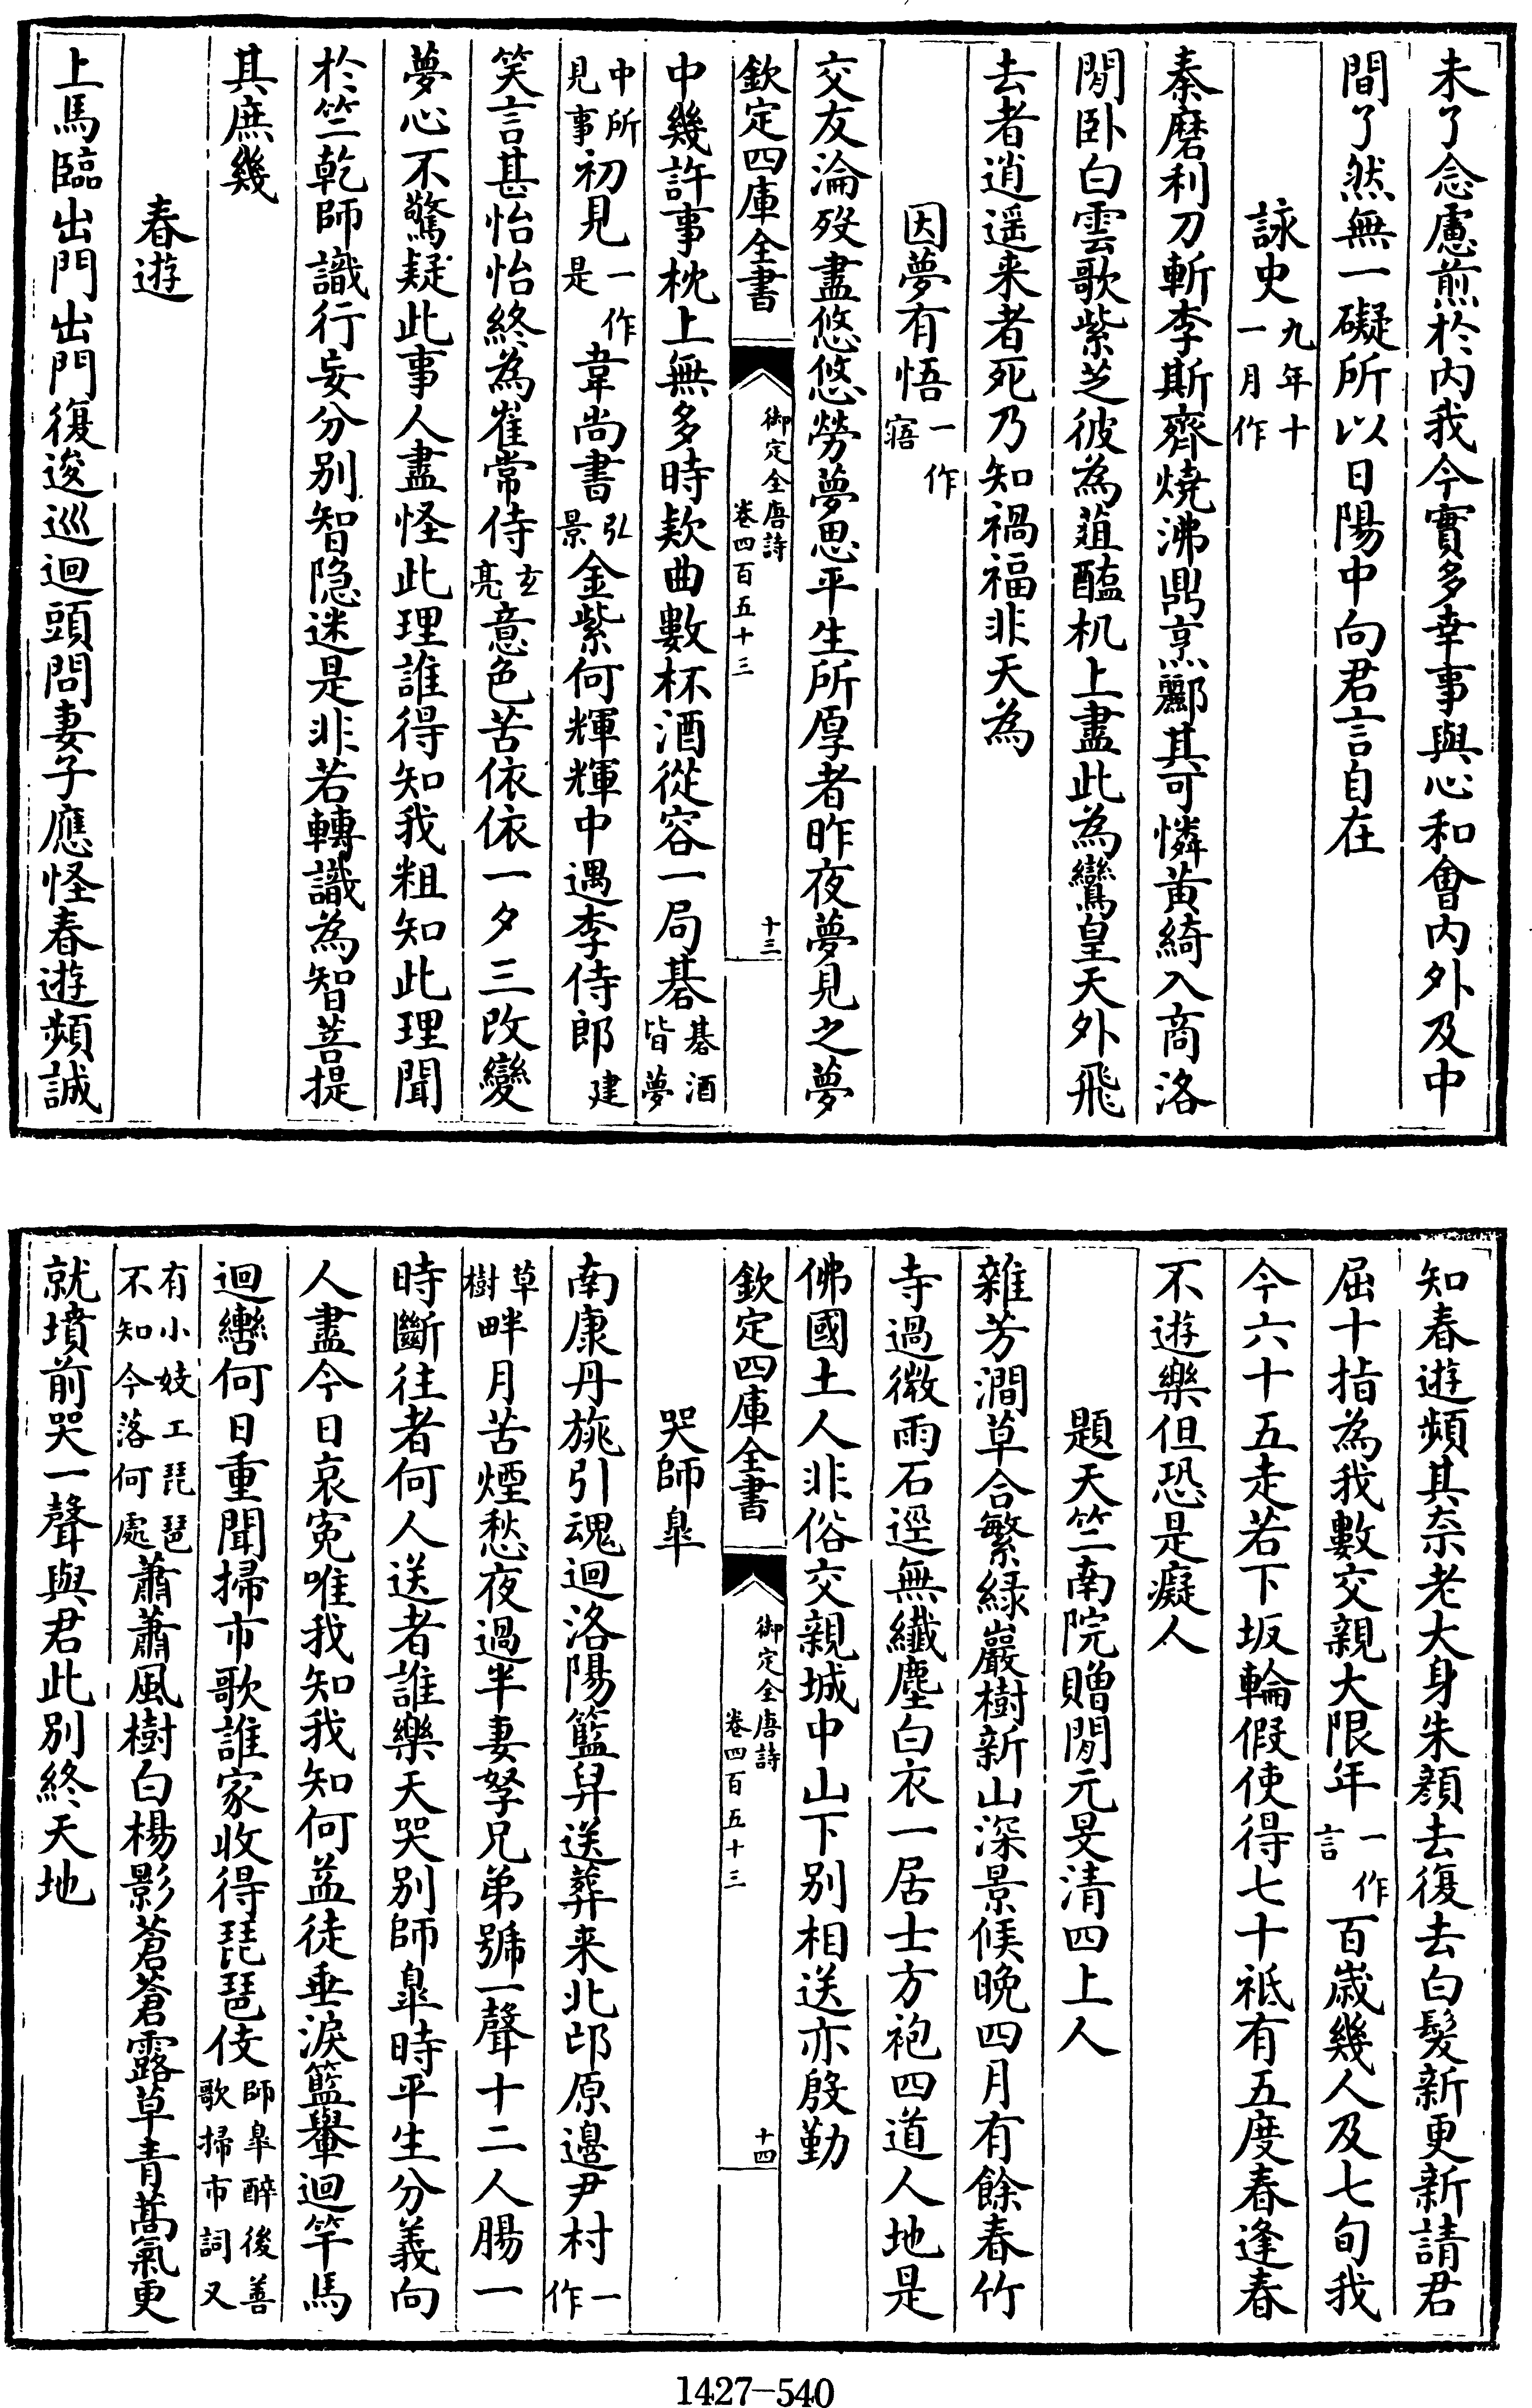 未了念慮煎於内我今實多幸事與心和會内外及中
間了然無一礙所以日陽中向君言自在
詠史九年十一月作
秦磨利刀斬李斯齊燒沸鼎烹酈其可憐黄綺入商洛
閒卧白雲歌紫芝彼為葅醢机上盡此為鸞皇天外飛
去者逍遥来者死乃知禍福非天為
因夢有悟一作寤
交友淪殁盡悠悠勞夢思平生所厚者昨夜夢見之夢
欽定四庫全書 御定全唐詩卷四百五十三 十三
中幾許事枕上無多時欵曲數杯酒從容一局碁碁酒皆夢
中所見事初見一作是韋尚書弘景金紫何輝輝中遇李侍郎建
笑言甚怡怡終為崔常侍玄亮意色苦依依一夕三改變
夢心不驚疑此事人盡怪此理誰得知我粗知此理聞
於竺乾師識行妄分别智隐迷是非若轉識為智菩提
其庶幾
春遊
上馬臨出門出門復逡巡迴頭問妻子應怪春遊頻誠
知春遊頻其奈老大身朱顔去復去白髮新更新請君
屈十指為我數交親大限年一作言百歲幾人及七旬我
今六十五走若下坂輪假使得七十祗有五度春逢春
不遊樂但恐是癡人
題天竺南院贈閒元旻清四上人
雜芳澗草合繁緑巖樹新山深景候晚四月有餘春竹
寺過微雨石逕無纖塵白衣一居士方袍四道人地是
佛國土人非俗交親城中山下别相送亦殷勤
欽定四庫全書 御定全唐詩卷四百五十三 十四
哭師臯
南康丹旐引魂迴洛陽籃舁送葬来北邙原邉尹村一作
草樹畔月苦煙愁夜過半妻孥兄弟號一聲十二人腸一
時斷往者何人送者誰樂天哭别師臯時平生分義向
人盡今日哀寃唯我知我知何益徒垂淚籃轝迴竿馬
迴轡何日重聞掃市歌誰家收得琵琶伎師臯醉後善歌掃市詞又
有小妓工琵琶不知今落何處蕭蕭風樹白楊影蒼蒼露草青蒿氣更
就墳前哭一聲與君此别終天地
1427-540